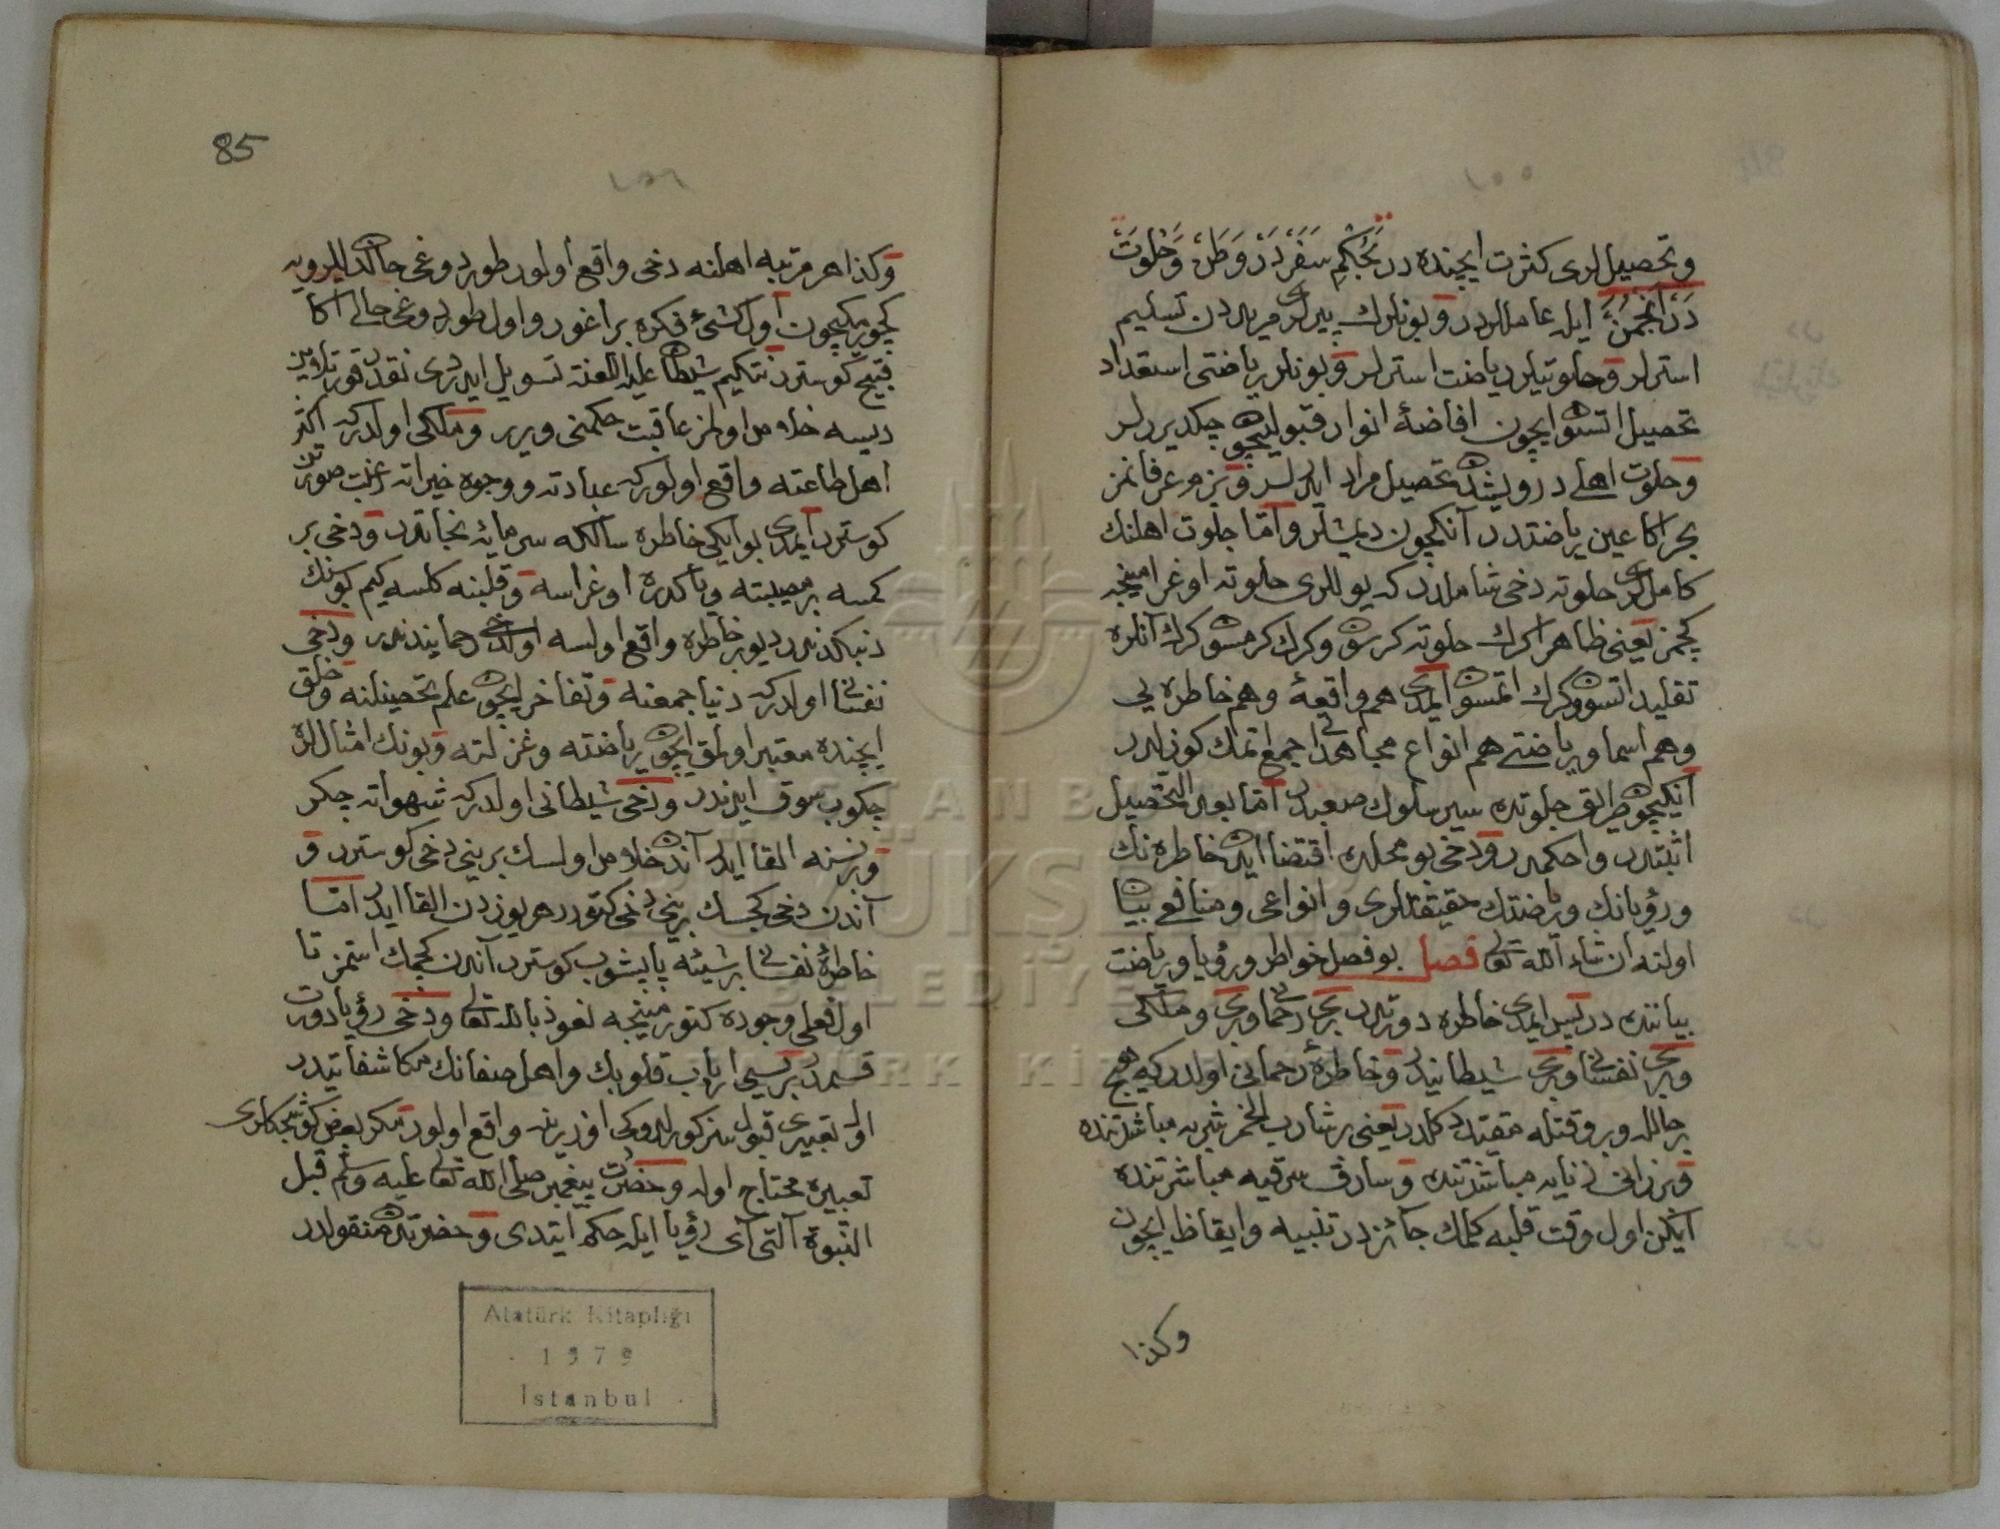 ١٥٥
وتحصيللرى كثرت ايچنده در بحكم سفر در وطن وخلوت
در انجمن ايله عاملردر وبونلرك پيرلرى مريددن تسليم
استرلر وخلوتيلر رياضت استرلر وبونلر رياضتى استعداد
تحصيل اتسون ايچون افاضۀ انوار قبولیچون چكديررلر
وخلوت اهلى درويشدن تحصيل مراد ايدرلر وبزم عرفانمز
بحرا كا عين رياضتدر آنكچون ديمشلر واما جلوت اهلنك
كامللرى خلوته دخى شاملدر كه يوللرى خلوته اوغرامينجه
كچمز يعنى ظاهرا كرك خلوته كرسون وكرك كرمسون كرك آنلره
تقليد اتسون وكرك اتمسون ايمدى هم واقعۀ وهم خاطره يى
وهم اسما ورياضتى هم انواع مجاهداتى جمع اتمك كوزلدر
آنكيچون طريق جلوتده سير سلوك صعبدر اما بعد التحصيل
اثبتدر واحكمدر ودخى بو محلده اقتضا ايدن خاطره نك
ورؤيانك ورياضتك حقيقتلرى وانواعى ومنافعى بيان
اولنه ان شاء الله تعالى فصل بو فصل خواطر ورؤيا ورياضت
بياننده در بس ايمدى خاطره دورتدر برى رحمانى وبرى وملكى
وبرى نفسانى وبرى شيطانيدر وخاطرۀ رحمانى اولدر كيم هيچ
بر حالله وبر وقتله مقيد دكلدر يعنى برشارب الخمر شربه مباشرتنده
وبر زانى زنايه مباشرتنده وسارق سرقيه مباشرتنده
ايكن اول وقت قلبه كلمك جائزدر تنبيه وايقاظ ايچون
وكذا
85
١٥٦
وكذا هر مرتبه اهلنه دخى واقع اولور طوردوغى حالدن ايلرويه
كچورمكيچون اول كشئ فكره براغور واول طوردوغى حالى اكا
قبيح كوستررنتكيم شيطان عليه اللعنة تسويل ايدردى نقدر قورتلدين
ديسه خلاص اولمز عاقبت حكمنى ويرر وملكى اولدركه اكثر
اهل طاعته واقع اولور كه عبادته ووجوه خيراته رغبت صورتن
كوسترر ايمدى بو ايكى خاطره سالكه سرمايۀ نجاتدر ودخى بر
كمسه بر مصيبته ويا كدره اوغراسه وقلبنه كلسه كيم بونك
دنبالندندر ديو بر خاطره واقع اولسه اولدخى رحمانيدندر ودخى
نفسانى اولدركه دنيا جمعنه وتفاخر ايچون علم تحصيلنه وخلق
ايچنده معتبر اولمق ايچون رياضته وعزلته وبونك امثاللره
چكوب سوق ايدندر ودخى شيطانى اولدركه شهواته چكر
وبرنسنه القا ايدر آندن خلاص اولسك برينى دخى كوسترر و
آندن دخى كچسك برينى دخى كتورر هر يوزدن القا ايدر اما
خاطرۀ نفسانى برشيئه ياپيشوب كوسترر آندن كچمك استمز تا
اول فعلى وجوده كتورمينجه نعوذ بالله تعالى ودخى رؤيا دورت
قسمدر برقسمى ارباب قلوبك واهل صفانك مكاشفاتيدر
اول تعبيرى قبول ستر كورلدوكى اوزرينه واقع اولور مكر بعض كوشجكلرى
تعبيره محتاج اوله وحضرت پيغمبر صلى الله تعالى عليه وسلم قبل
النبوة آلتى آى رؤيا ايله حكم ايتدى وحضرتدن منقولدر
Atatürk Kitaplığı
1979
İstanbul